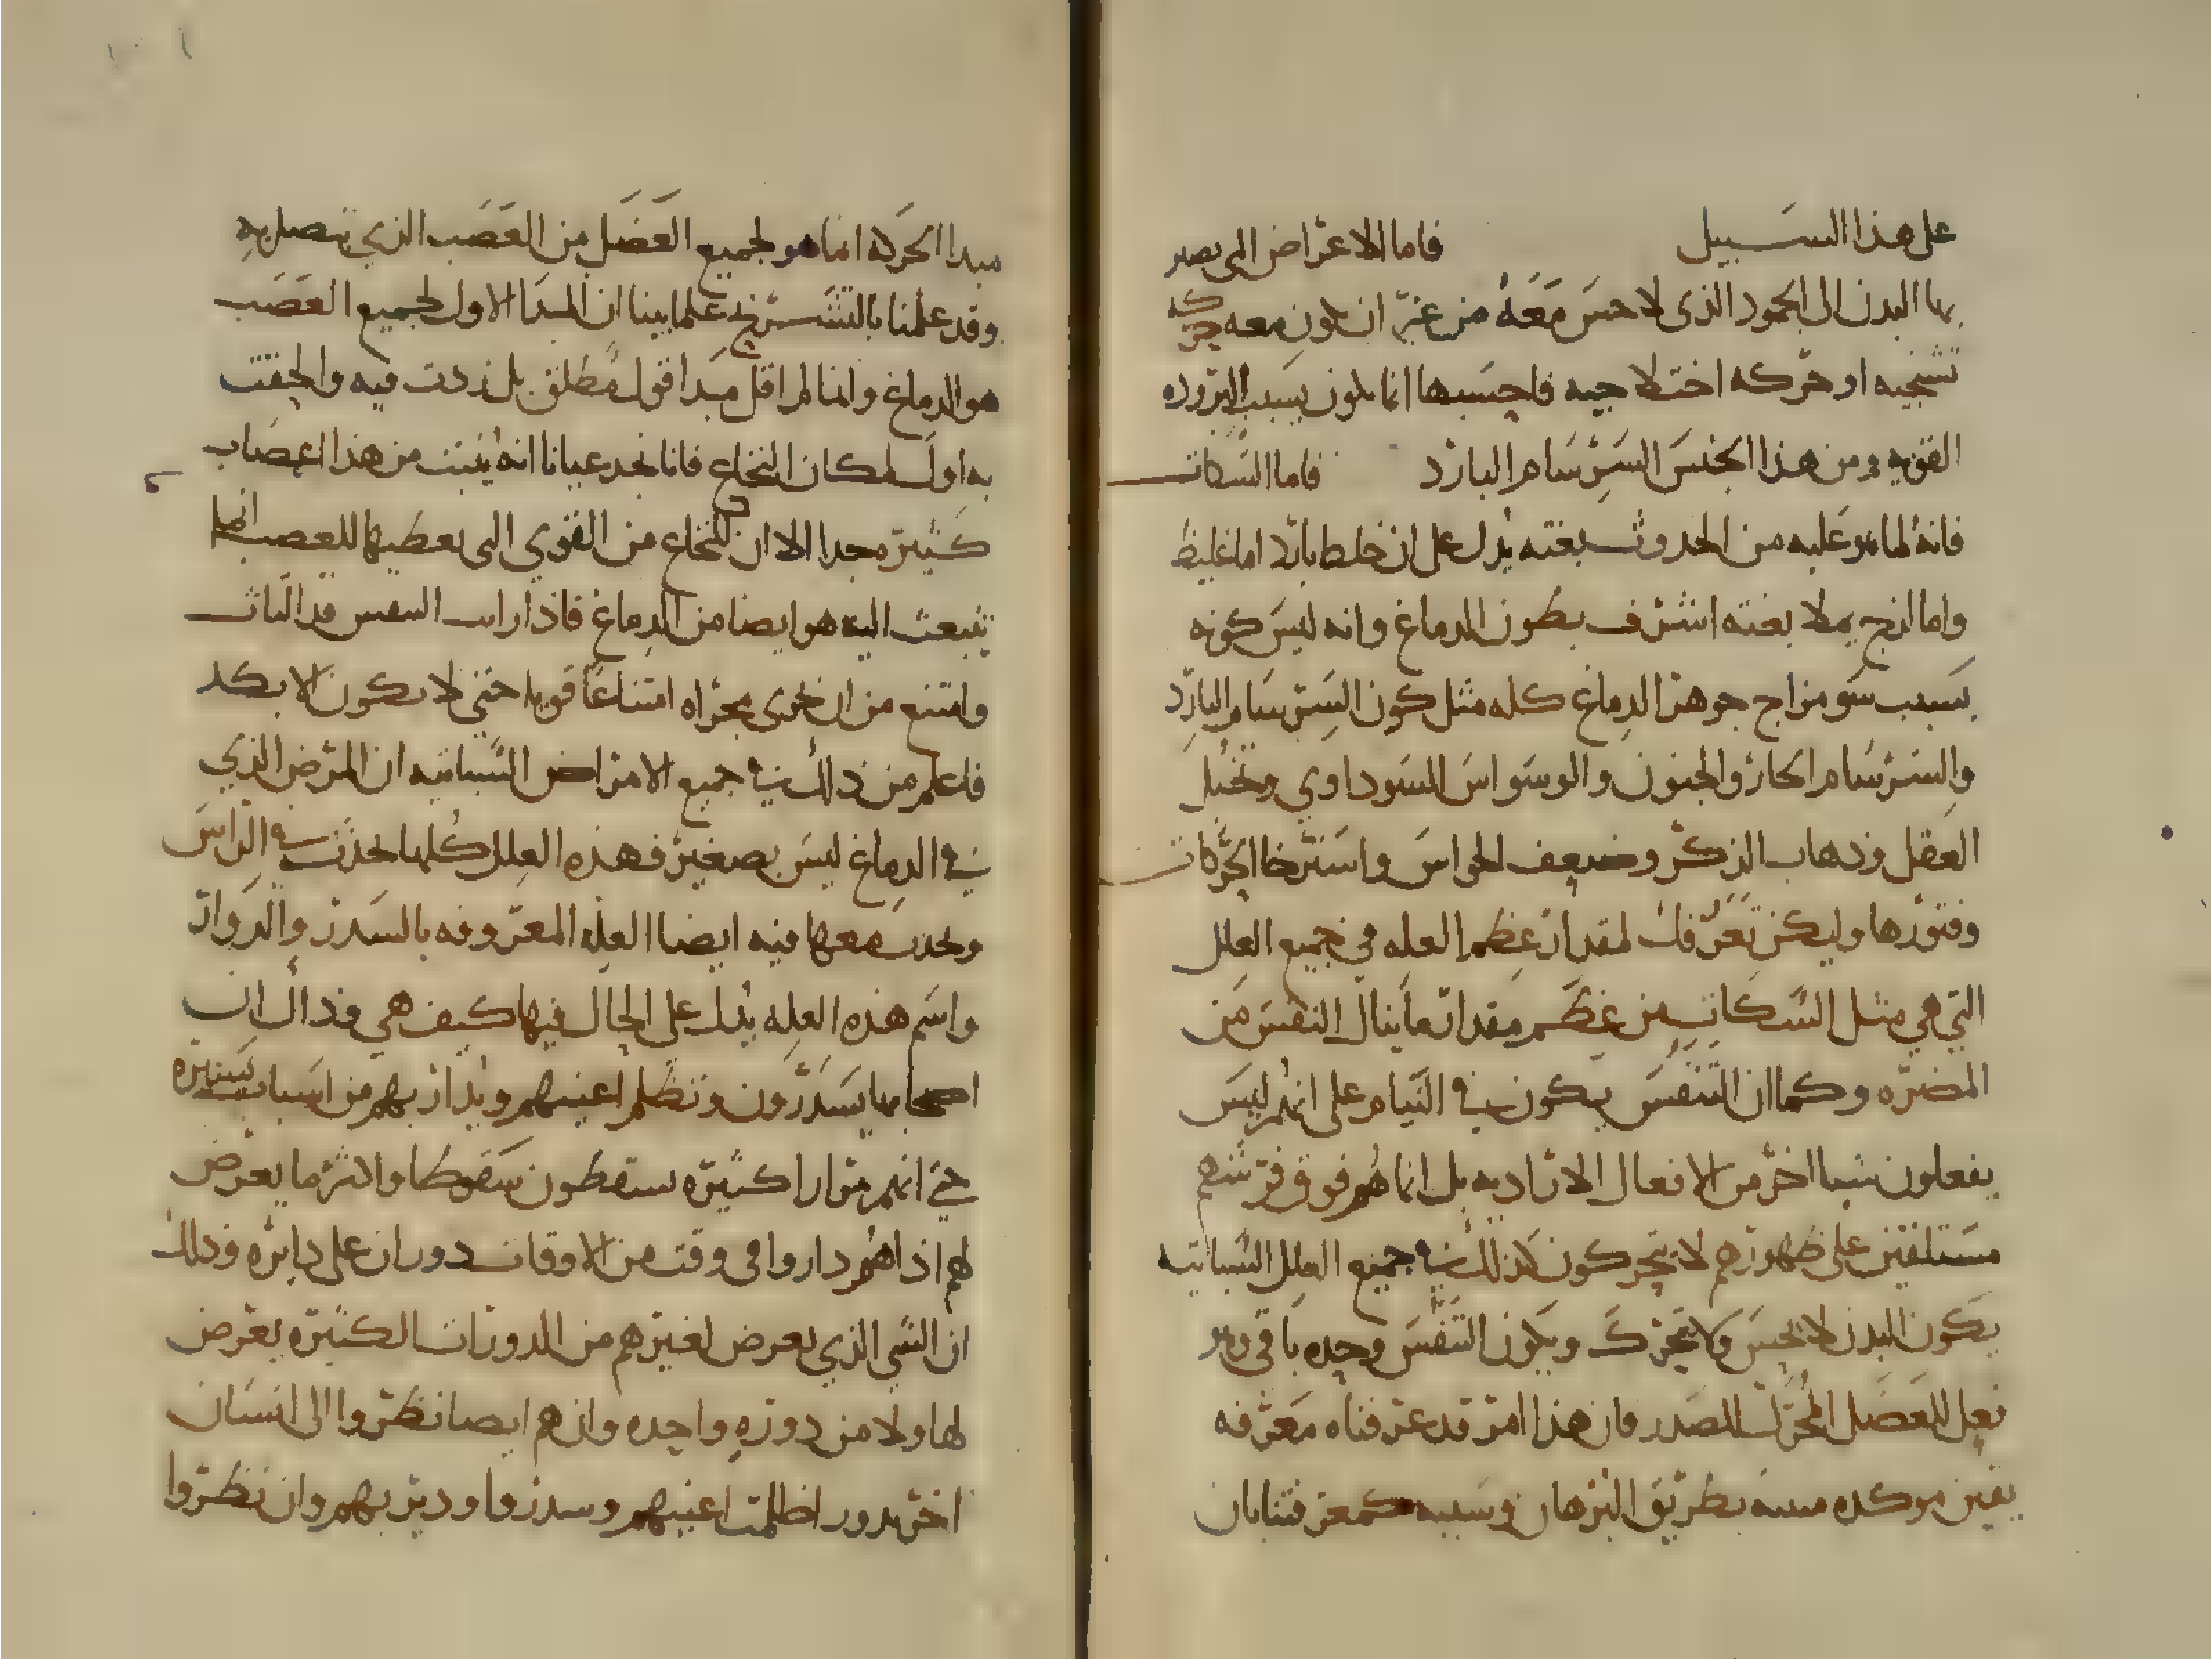 على هذا السبيل فاما الاعراض التى يصير
بها البدن الى الجمود الذى لا حس مَعَهُ من غير ان يكون معه حركه
تشنجيه او حركه اختلاجيه فاحسبها انما يكون بسبب البروده
القويه ومن هذا الجنس السرسام البارد فاما السكات
فانه لما هو عليه من الحدوث بغته يدل على ان خلط بارد اما غليظ
واما لزج يملا بغته اشرف بطون الدماغ وانه ليس كونه
بسبب سو مزاج جوهر الدماغ كله مثل كون السرسام البارد
والسرسام الحار والجنون والوسواس السوداوي وتخيل
العقل وذهاب الذكر وضعف الحواس واسترخا الحركات
وفتورها وليكن تعرفك لمقدار عظم العله في جميع العلل
التي هي مثل السكات من عظم مقدار ما ينال التنفس من
المضره وكما ان التنفس يكون في النيام على انهم ليس
يفعلون شيا اخر من الافعال الاراديه بل انما هُم فوق فرشهم
مستلقين على ظهورهم لا يتحركون كذلك في جميع العلل السباتيه
يكون البدن لا يحس ولا يتحرك ويكون التنفس وحده باقى وهو
فعل للعضل المحرك للصدر فان هذا امر قد عرفناه معرفه
يقين موكده مبينه بطريق البرهان وسببه كمعرفتنا بان
مبدا الحركه انما هو لجميع العَضَل من العَصَب الذي يتصل به
وقد علمنا بالتشريح علما بينا ان المبدا الاول لجميع العَصَب
هو الدماغ وانما لم اقل مبدا قول مطلق بل زدت فيه والحقت
به اول لمكان النخاع فانا نجد عيانا انه ينبت من هذا اعصاب
كثيره جدا الا ان النخاع من القوي التى يعطيها للعصب انما
تنبعث اليه هو ايضا من الدماغ فاذا رايت التنفس قد التاث
وامتنع من ان يجرى مجراه امتناعًا قويا حتي لا يكون الا بكد
فاعلم من ذلك في جميع الامراض السباتيه ان المرض الذي
في الدماغ ليس بصغير فهذه العلل كُلها تحدث في الراس
وتحدث معها فيه ايضا العله المعروفه بالسدر والدوار
واسم هذه العله يدلك على الحال فيها كيف هي وذلك ان
اصحابها يسدرون وتظلم اعينهم ويدار بهم من اسباب يسيره
حتي انهم مرارا كثيره يسقطون سقوطا واكثر ما يعرض
لهم اذا هُم داروا في وقت من الاوقات دوران على دايره وذلك
ان الشي الذي يعرض لغيرهم من الدورات الكثيره يعرض
لهاولا من دوره واحده وان هم ايضا نظروا الى انسان
اخر يدور اظلمت اعينهم وسدروا ودير بهم وان نظروا